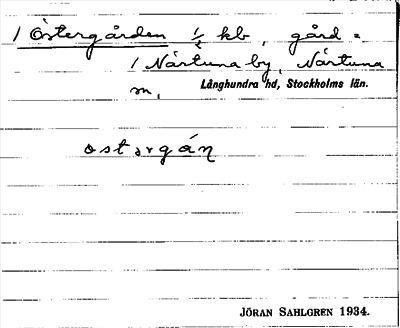 1 Östergården 1/2 kb, gård =
1 Närtuna by, Närtuna
sn, Långhundra hd, Stockholms län.
JÖRAN SAHLGREN 1934.